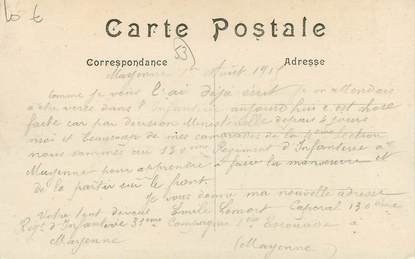 10 €
Carte Postale
53
Correspondance Adresse
Mayenne Août 191
comme je vous l'ai déjà écrit je m'attendais
a être versé dans l'Infanterie aujourd'hui c'est chose
faite car par décision Ministérielle depuis 2 jours
moi et beaucoup de mes camarades de la section
nous sommes au 130 Régiment d'Infanterie a
Mayenne pour apprendre a faire la manœuvre et
de la partir sur le front.
Je vous donne ma nouvelle adresse
Votre tout dévoué Emile Caporal 130ème
Reg d'Infanterie 31ème Compagnie Escouade a
Mayenne (Mayenne)